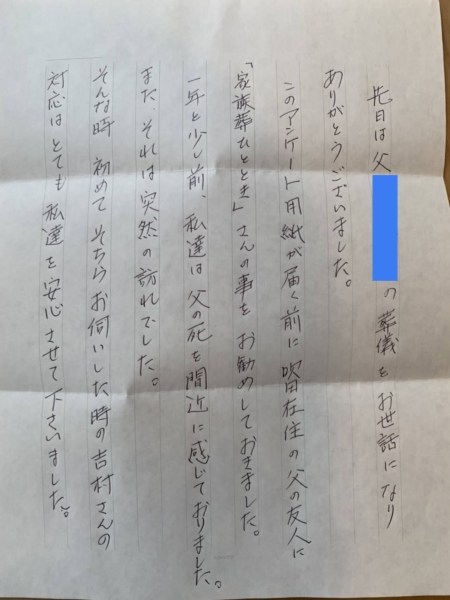 先日は父の葬儀をお世話になり
ありがとうございました。
このアンケート用紙が届く前に吹田在住の父の友人に
「家族葬ひととき」さんの事をお勧めしておきました。
一年と少し前、私達は父の死を間近に感じておりました。
また、それは突然の訪れでした。
そんな時初めてそちらへお伺いした時の吉村さんの
対応はとても私達を安心させて下さいました。